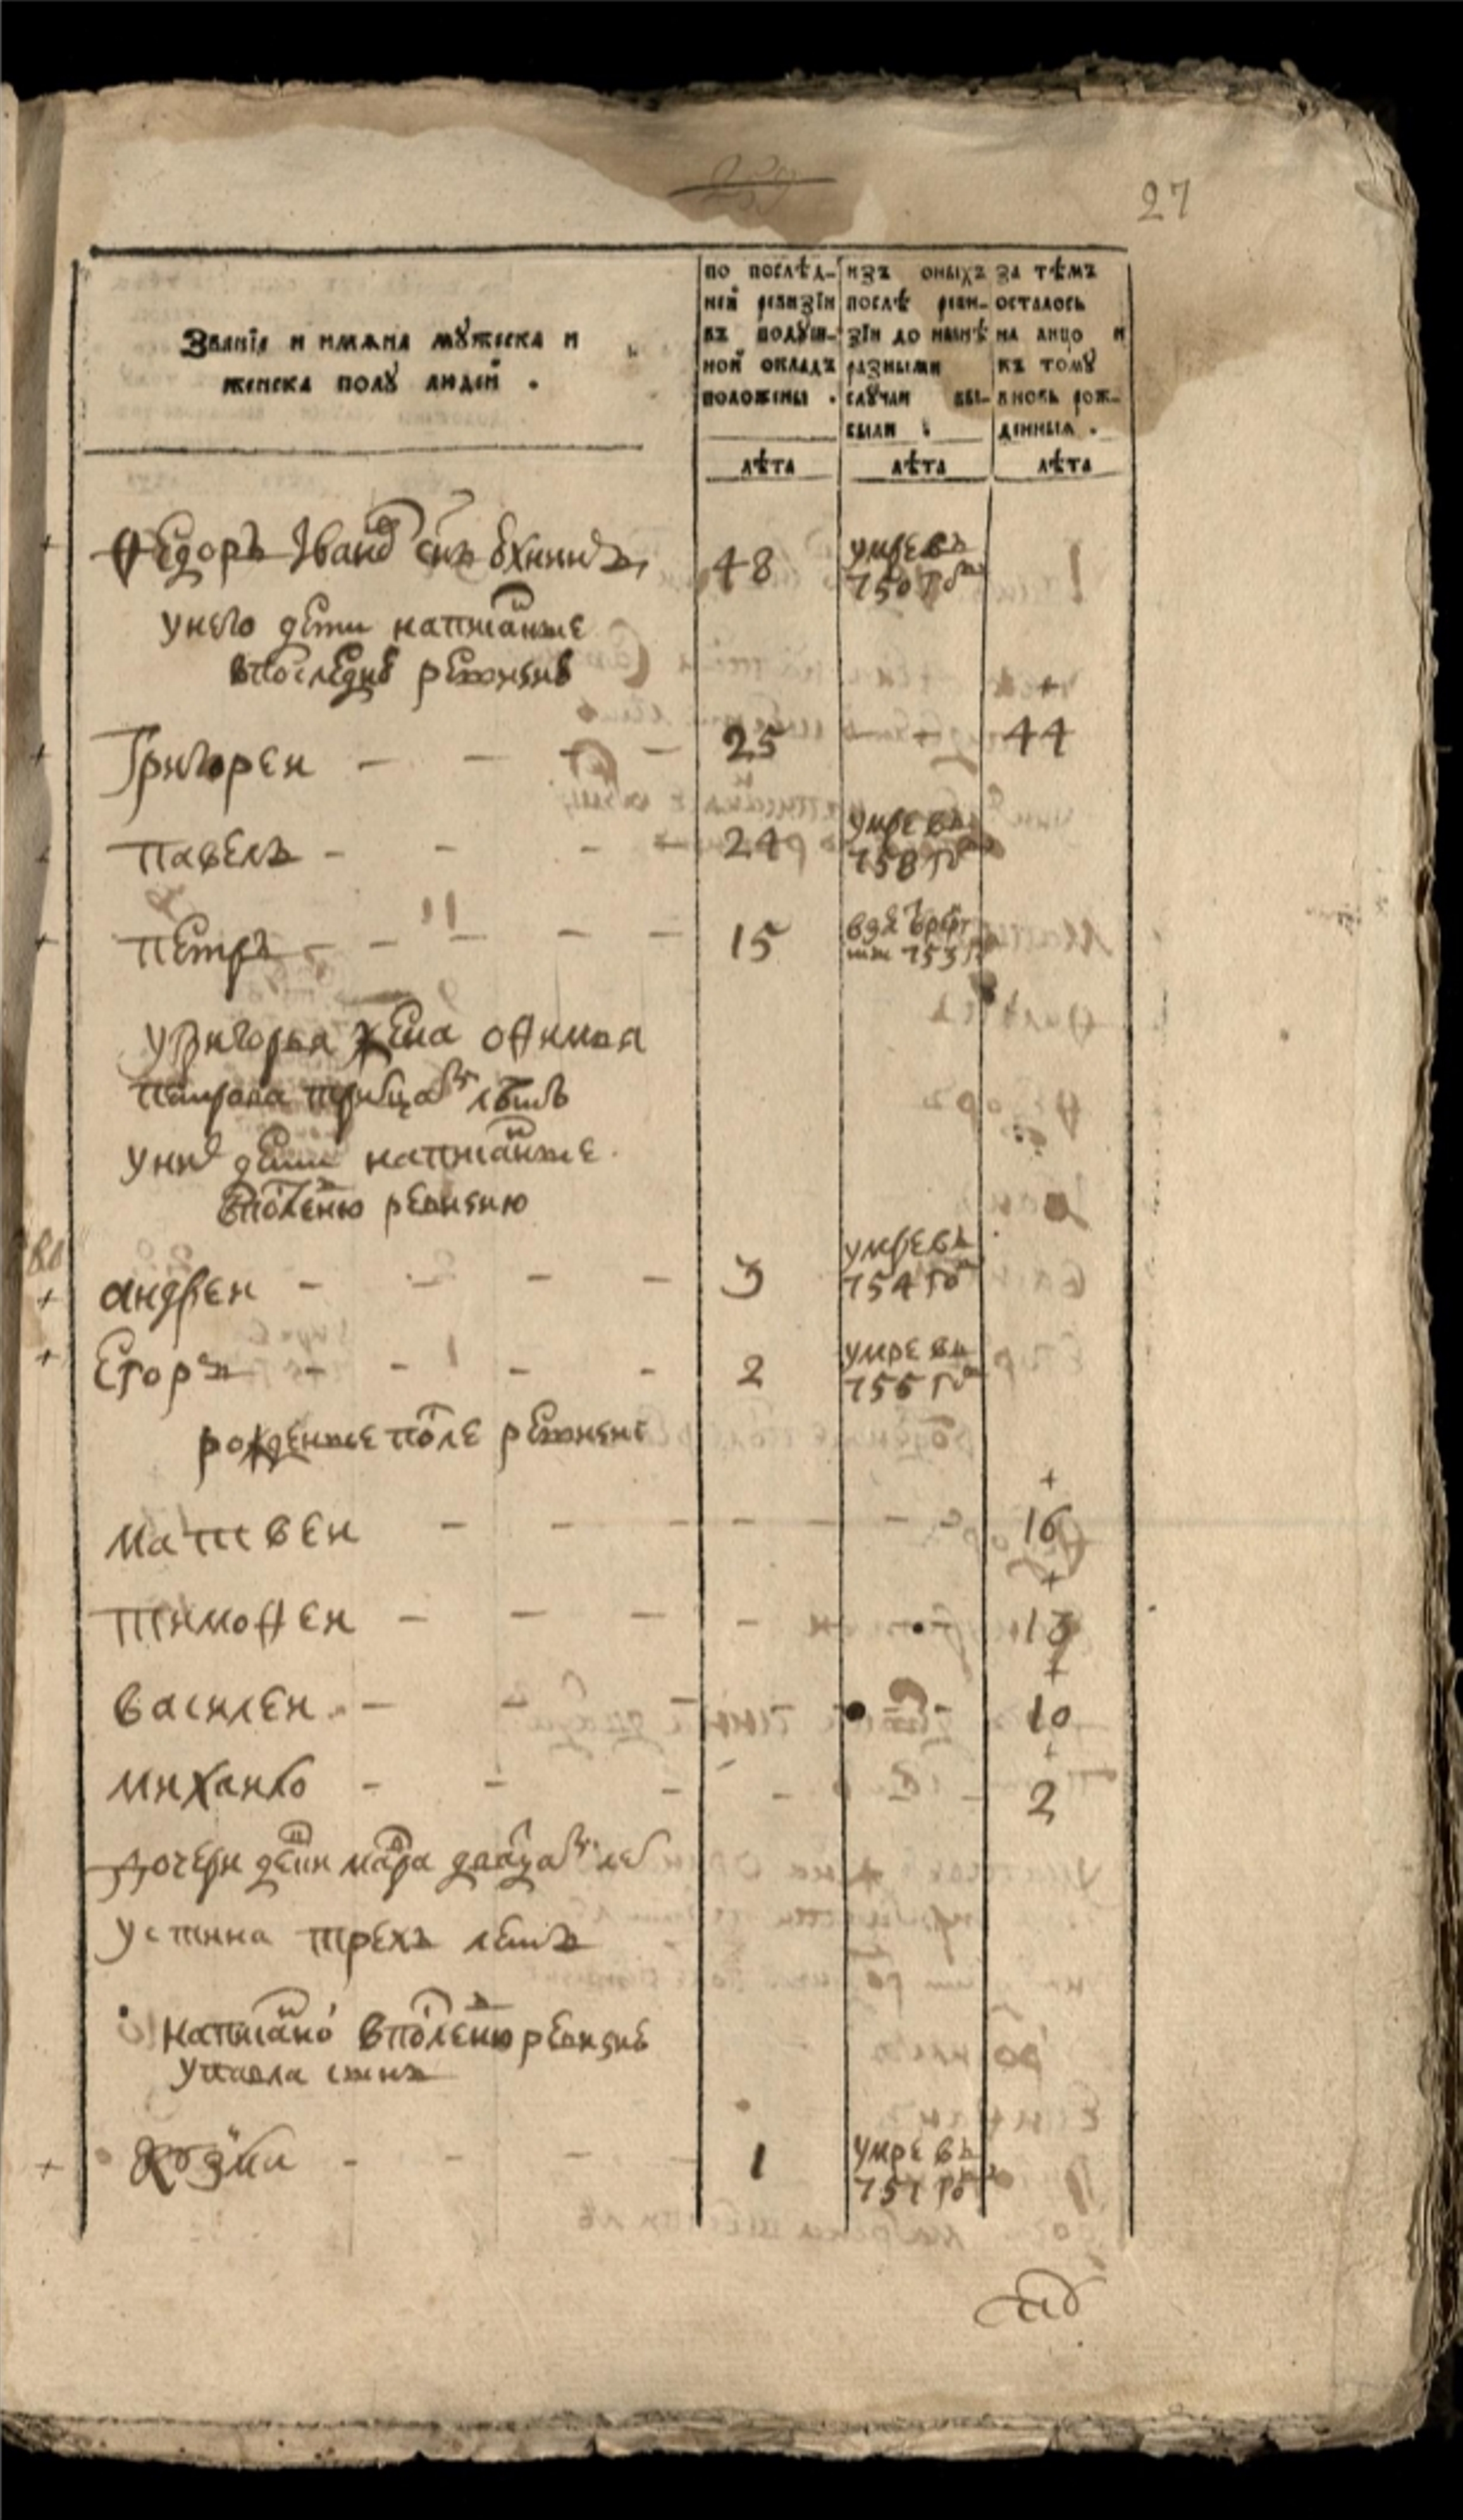 27
Званїѧ и имѧна мꙋжеска и
женска полꙋ людей .
по послѣд-
ней ревизїи
въ подꙋш-
ной окладъ
положены .
изъ оныхъ
послѣ реви-
зїи до нынѣ
разными
слꙋчаи вы-
были .
за тѣмъ
осталось
на лицо и
къ томꙋ
вновь рож-
денныѧ .
лѣта лѣта лѣта
Ѳедоръ Iвано снъ 48 умре въ
750 го
унего дети написаные
впоследне ревизие
Григореи - - - - 25 44
павелъ - - - 24 умре въ
758 го
петръ - - - - - 15 753
угригорья жена офимья
петрова лѣтъ
уни дети написаные
вполенюю ревизию
андреи - - - - 3 умре въ
754 го
Егоръ - - - - 2 умре въ
755 го
рожденые поле ревизие
матвеи - - - - - - - 16
тимофеи - - - - 13
василеи - - - 10
михаило - - - - 2
дочери мара
устина трехъ летъ
написано вполеню ревизие
упавла сынъ
козма - - - 1 умре въ
751 го